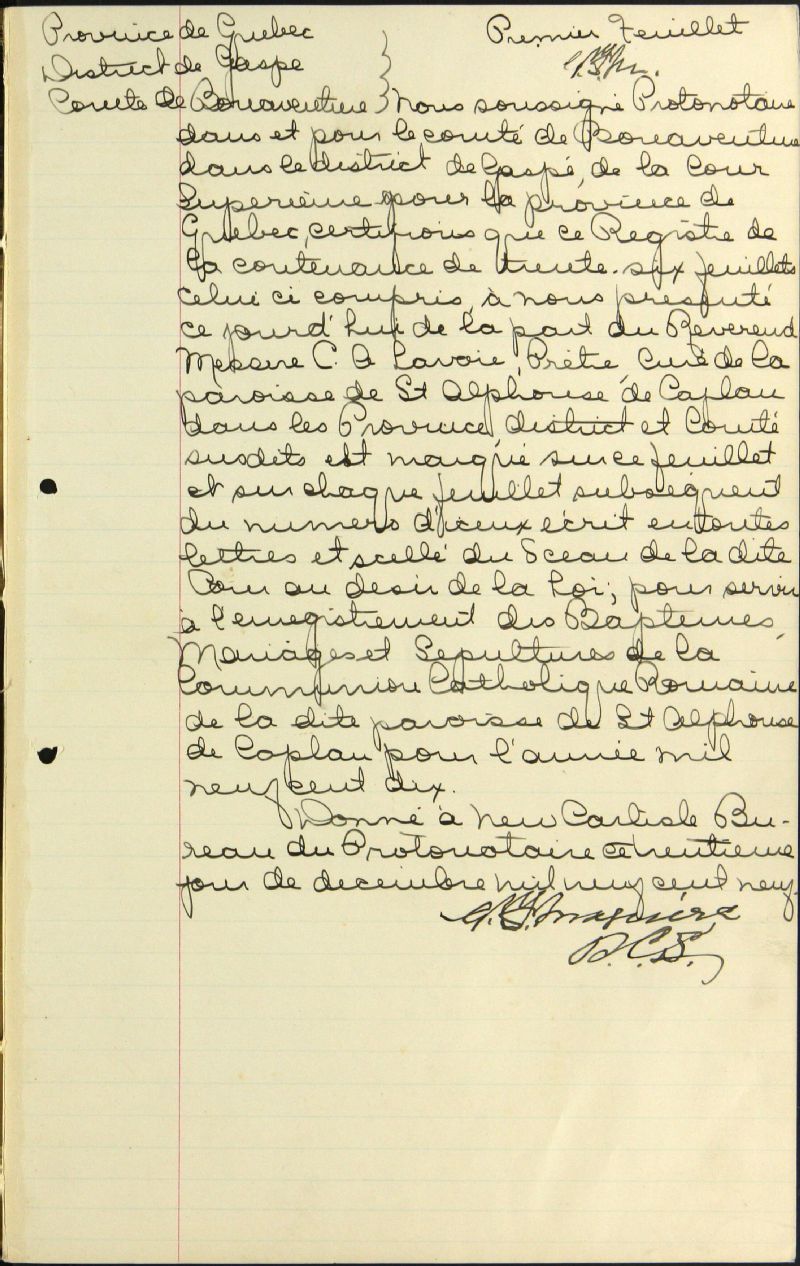 Province de Quebec
Premier Feuillet
District de Gaspe
Comte de Bonaventure Nous soussigné Protonotaire
dans et pour le comté de Bonaventure
dans le district de Gaspé, de la Cour
Superieure pour la province de
Quebec, certifions que ce Registre de
la contenance de trente-six feuillets
celui ci compris, à nous presenté
ce jourd'hui de la part du Reverend
Messire C. A Lavoie, Prêtre, Curé de la
paroisse de St Alphonse de Caplan
dans les Province, district et Comté
susdits est marqué sur ce feuillet
et sur chaque feuillet subseqnent
du numero d'iceux écrit en toutes
lettres et scellé du Sceau de la dite
Cour au desir de la Loi; pour servir
à l'enregistrement des Baptemes,
Mariages et Sepultures de la
Communion Catholique Romaine
de la dite paroisse de St Alphonse
de Caplan pour l'année mil
neuf cent dix.
Donné à New Carlisle Bu-
reau du Protonotaire ce
jour de decembre mil neuf cent neuf.
P.C.S.